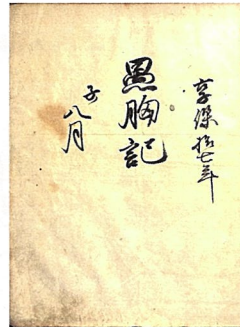 享保拾七年
愚胸記
子八月